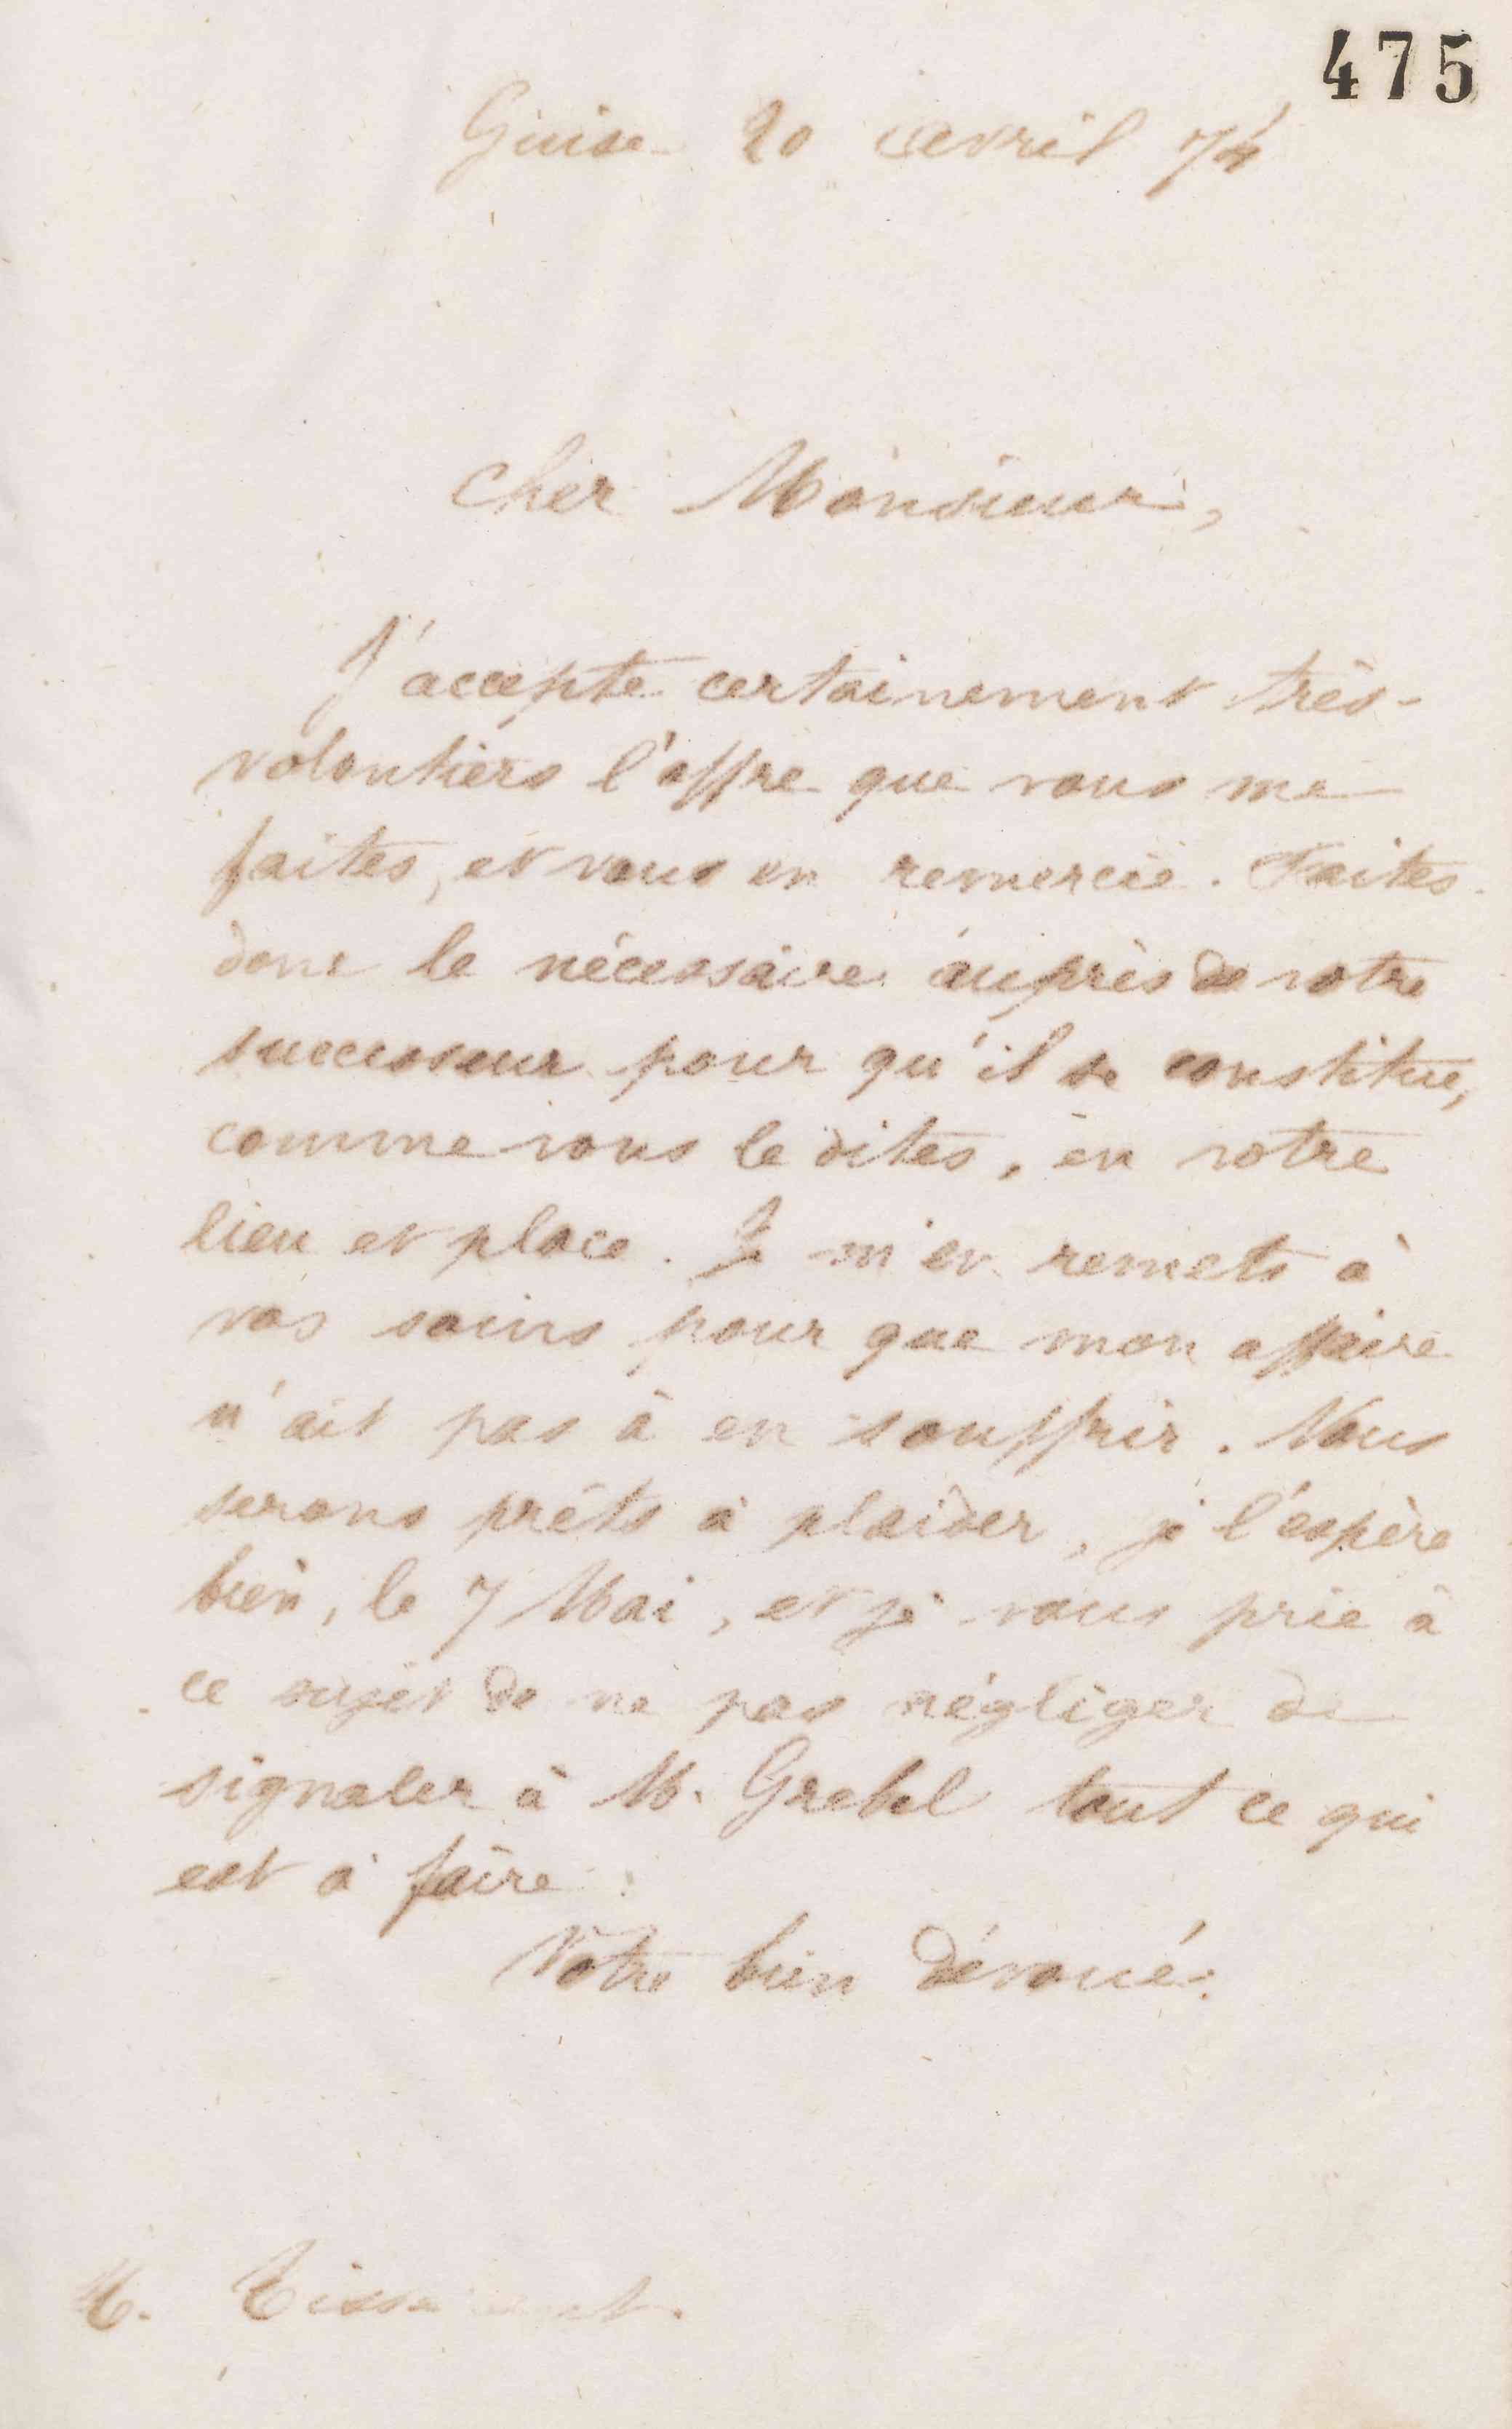 475
Guise 20 avril 74
Cher Monsieur,
J'accepte certainement très-
volontiers l'offre que vous me
faites, et vous en remercie. Faites
donc le nécessaire auprès de votre
successeur pour qu'il se constitue,
comme vous le dites, en votre
lieu et place. Je m'en remets à
vos soins pour que mon affaire
n'ait pas à en souffrir. Nous
serons prêts à plaider, je l'espère
bien, le 7 Mai, et je vous prie à
ce sujet de ne pas négliger de
signaler à M. Grebel tout ce qui
est à faire.
Votre bien dévoué.
M.